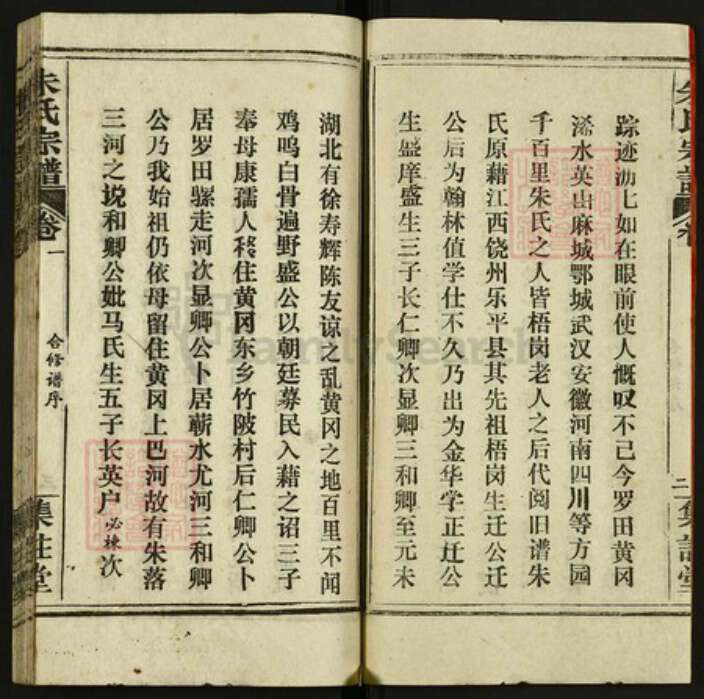 踪迹沥七如在眼前使人慨叹不己今罗田黄冈
浠水英山麻城鄂城武汉安徽河南四川等方园
千百里朱氏之人皆梧岗老人之后代阅旧谱朱
氏原藉江西饶州乐平县其先祖梧岗生迁公迁
公后为翰林值学仕不久乃出为金华学正迁公
生盛庠盛生三子长仁卿次显卿三和卿至元末
湖北有徐寿辉陈友谅之乱黄冈之地百里不闻
鸡鸣白骨遍野盛公以朝廷募民入藉之诏三子
奉母康孺人移住黄冈东乡竹陂村后仁卿公卜
居罗田骡走河次显卿公卜居蕲水尤河三和卿
公乃我始祖仍依母留住黄冈上巴河故有朱落
三河之说和卿公妣马氏生五子长英户必栋次
朱氏宗谱
卷一
合修谱序